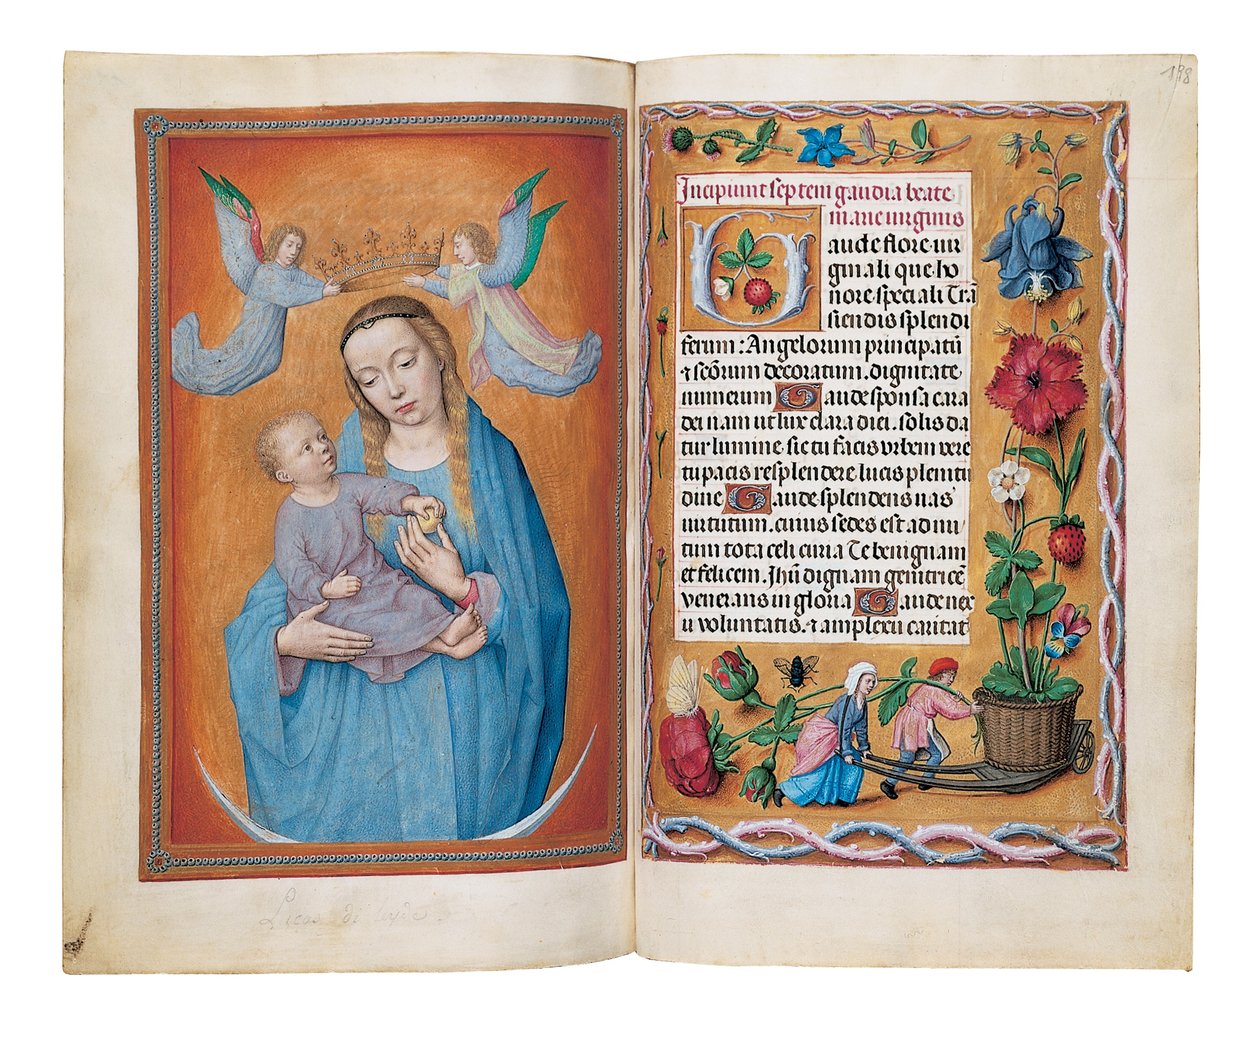 178
Incipiunt septem gaudia beate
marie uirginis
Gaude flore uir
ginali que ho
nore speciali Trā
siendis splendi
ferum : Angelorum principatū
⁊ scōrum decoratum . dignitate
numerum Gaude sponsa cara
dei nam ut lux clara diei . solis da
tur lumine sic tu facis vrbem vere
tu pacis resplendere lucis plenitu
dine Gaude splendens uas
uirtutum . cuius sedes est ad nu
tum tota celi curia Te benignam
et felicem . Jhū dignam genitricē
venerans in gloria Gaude nex
u voluntatis . ⁊ amplexu caritat
Lucas di leyde